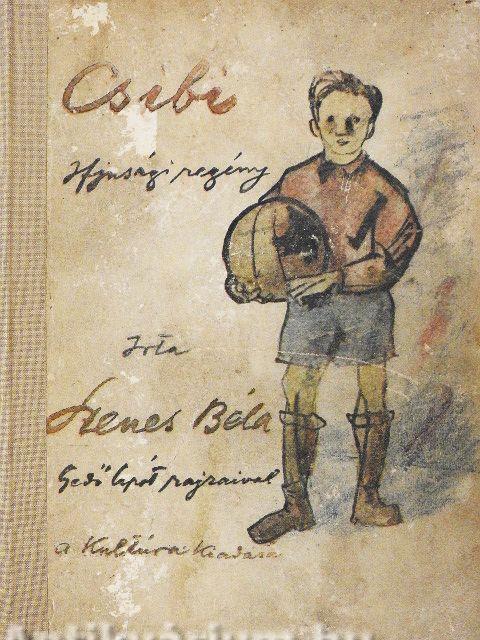 Csibi
Ifjusági regény
Irta
Szenes Béla
Gedő Lipót rajzaival
a Kultúra Kiadása
Antikvárium.hu